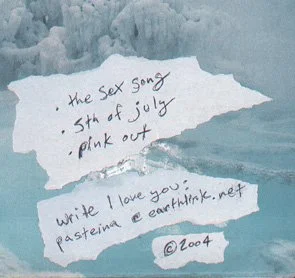 · the sex song
· 5th of july
· pink out
write I love you:
pasteina @ earthlink.net
©2004